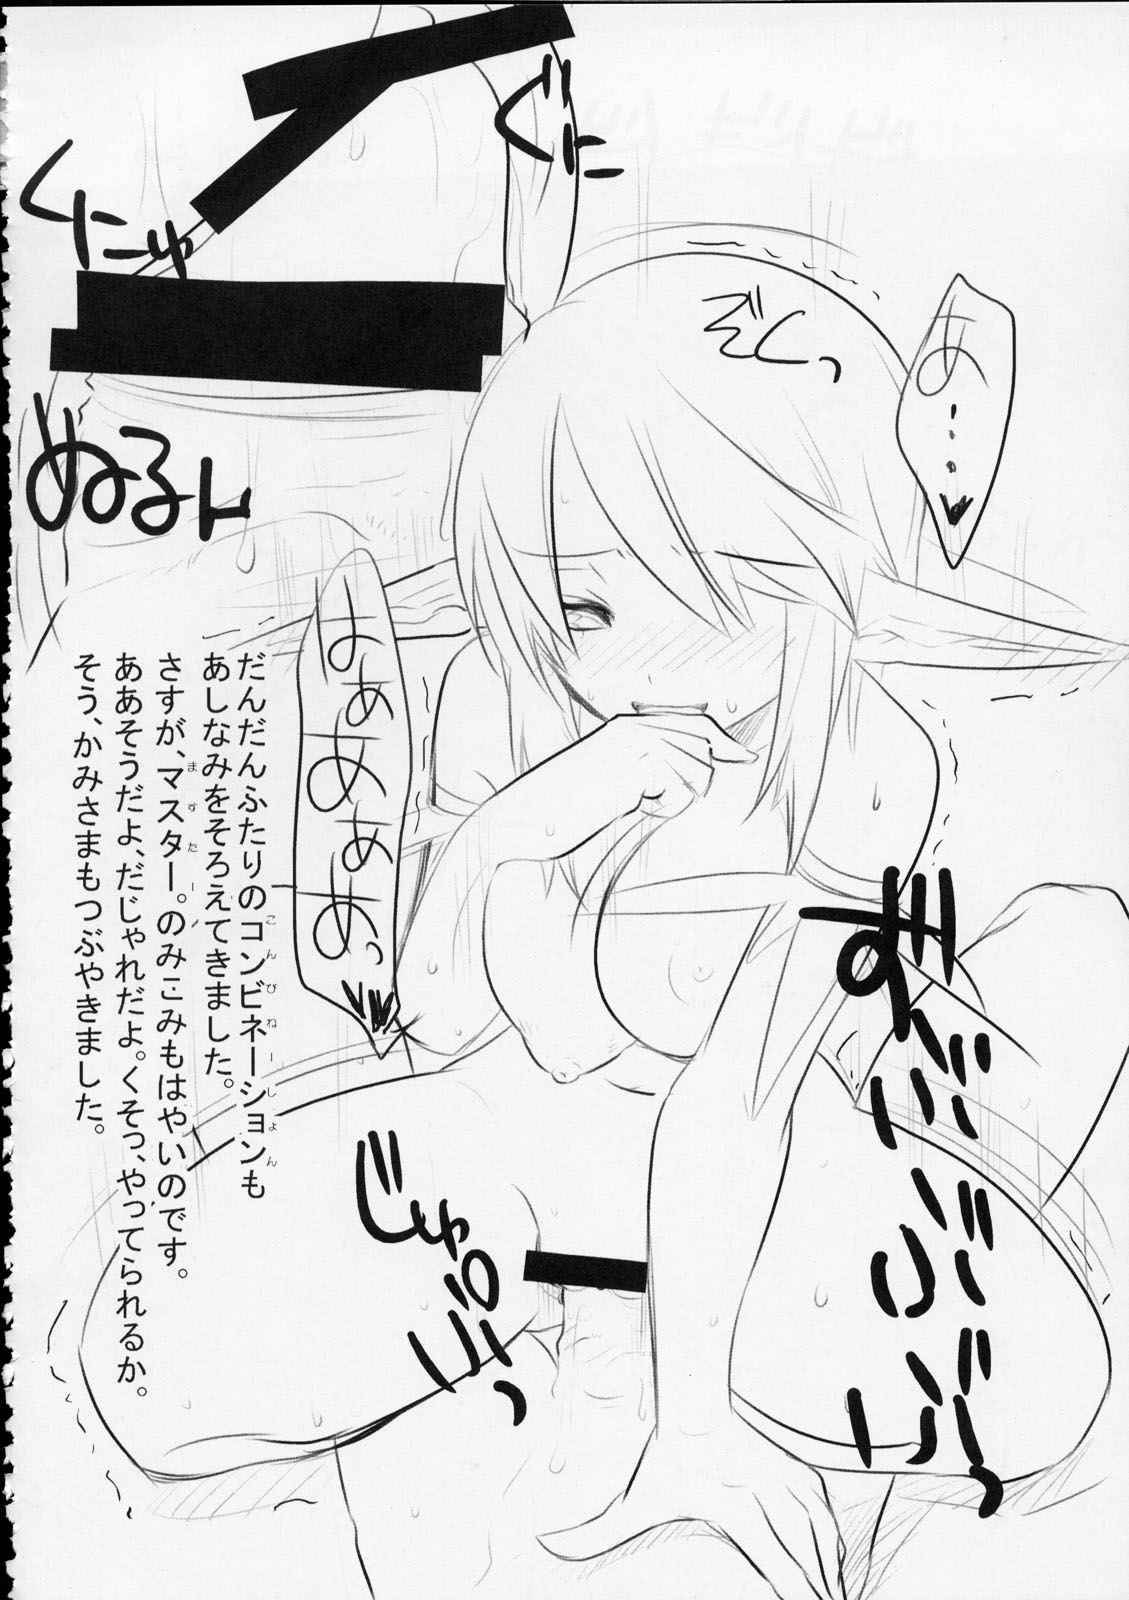 ぐに
くにゅ
ぬるん
ぞくっ
あ…‥
はぁあぁあっ
だんだんふたりのコンビネーションも
あしなみをそろえてきました。
さすが、マスター。のみこみもはやいのです。
ああそうだよ、だじゃれだよ。くそっ、やってられるか。
そう、かみさまもつぶやきました。
じゅぷっ